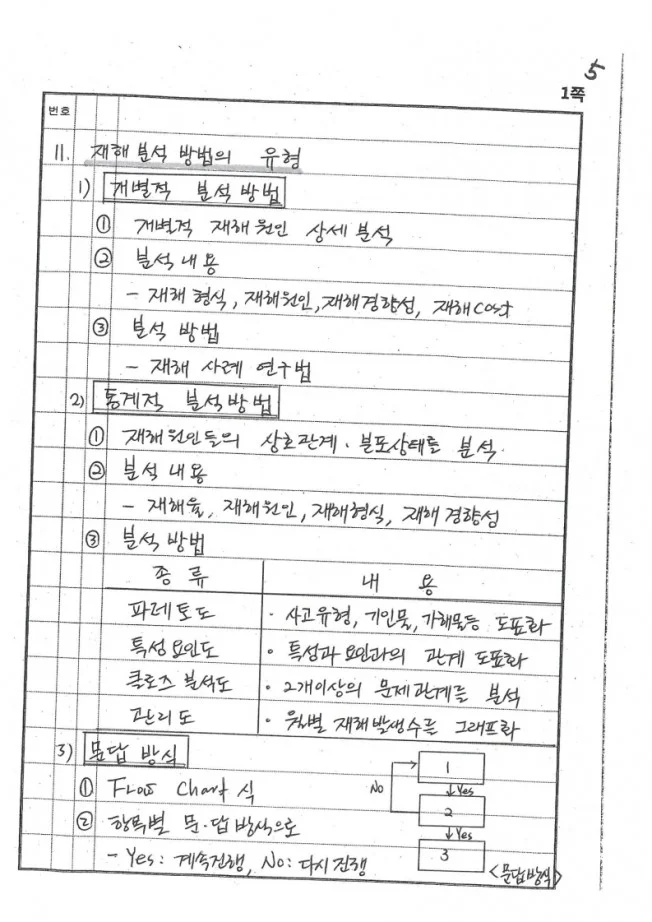 5
1쪽
번호
II. 재해 분석 방법의 유형
1) 개별적 분석 방법
① 개별적 재해원인 상세 분석
② 분석 내용
- 재해 형식, 재해원인, 재해경향성, 재해cost
③ 분석 방법
- 재해 사례 연구법
2) 통계적 분석 방법
① 재해원인들의 상호관계·분포상태를 분석.
② 분석 내용
- 재해율, 재해원인, 재해형식, 재해 경향성
③ 분석 방법
종 류 내 용
파레토도 · 사고유형, 기인물, 가해물등 도표화
특성요인도 · 특성과 요인과의 관계 도표화
클로즈 분석도 · 2개이상의 문제관계를 분석
관리도 · 월별 재해발생수를 그래프화
3) 문답 방식
① Flow Chart 식
② 항목별 문·답 방식으로
- Yes: 계속진행, No: 다시 진행
1
↓Yes
No
2
↓Yes
3
<문답방식>